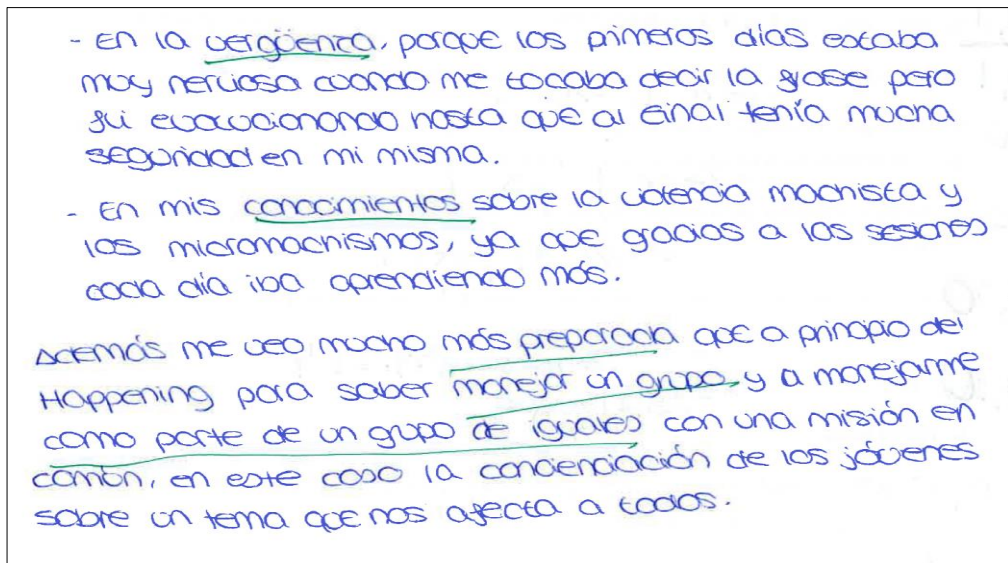 - En la vergüenza, porque los primeros días estaba
muy nerviosa cuando me tocaba decir la frase pero
fui evolucionando hasta que al final tenía mucha
seguridad en mi misma.
- En mis conocimientos sobre la violencia machista y
los micromachismos, ya que gracias a las sesiones
cada día iba aprendiendo más.
Además me veo mucho más preparada que a principio del
Happening para saber manejar un grupo y a manejarme
como parte de un grupo de iguales con una misión en
común, en este caso la concienciación de los jóvenes
sobre un tema que nos afecta a todos.